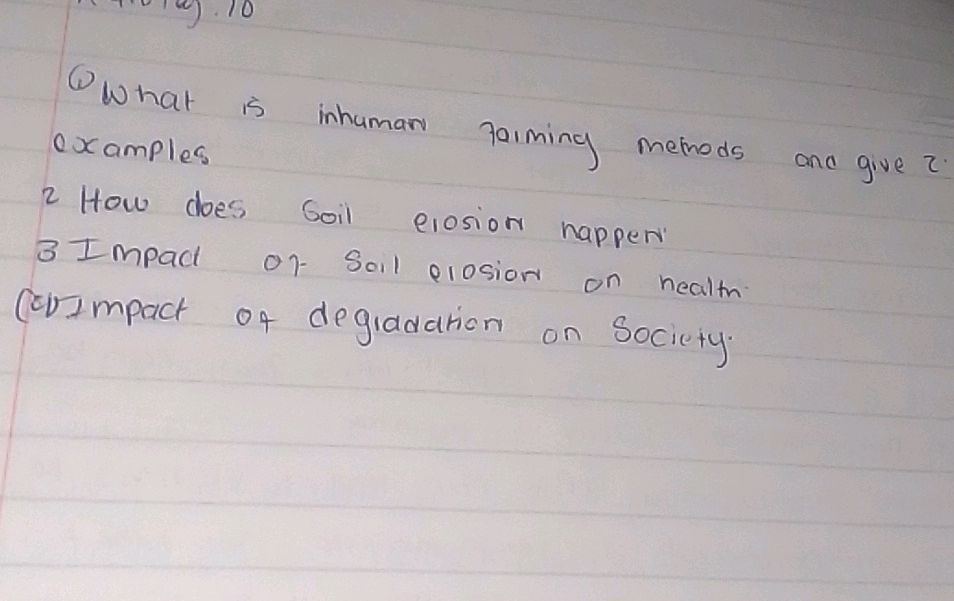 10
① What is inhuman farming methods and give 2
examples
2 How does Soil erosion happen
3 Impact of Soil erosion on health.
Impact of degradation on Society.